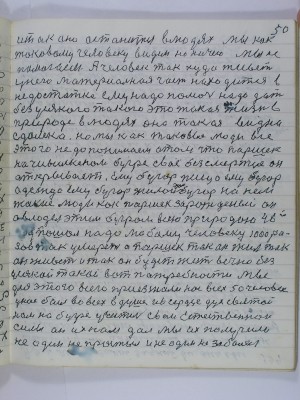 50
и так оно останется в людях мы как
таковому человеку видим но ничего мы не
помогаем А человек так худо живет
у него материальная часть находится в
недостатке ему надо помоч надо дать
без всякого такого это такая жизнь в
природе в людях она такая видна
сделалась. но мы как таковые люди все
этого не допонимаем о том что паршек
на чивилкином бугре свое бессмертие он
открывает. ему бугор пищу ему бугор
одежда ему бугор жилой бугор на нем
такие люди как паршек зарожденный он
овладел этим бугром всею природою чв
пошол надо любому человеку 1000 ра
зов так умереть а паршек так он жил так
он живет и так он будет жить вечно без
всякой такой вот потребности мы
для этого всего признали нас всех 50 человек
у нас был во всех в душе и в сердце дух святой
нам на бугре учитель свои естественной
силы он их нам дал мы их получили
не один не простыл и не один не заболел